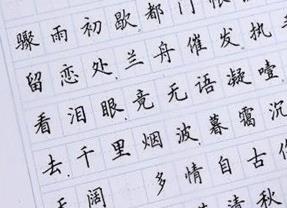 骤雨初歇.都门帐
留恋处.兰舟催发.执手
看泪眼.竟无语凝噎.
去.千里烟波.暮霭沉
天阔 多情自古
清秋